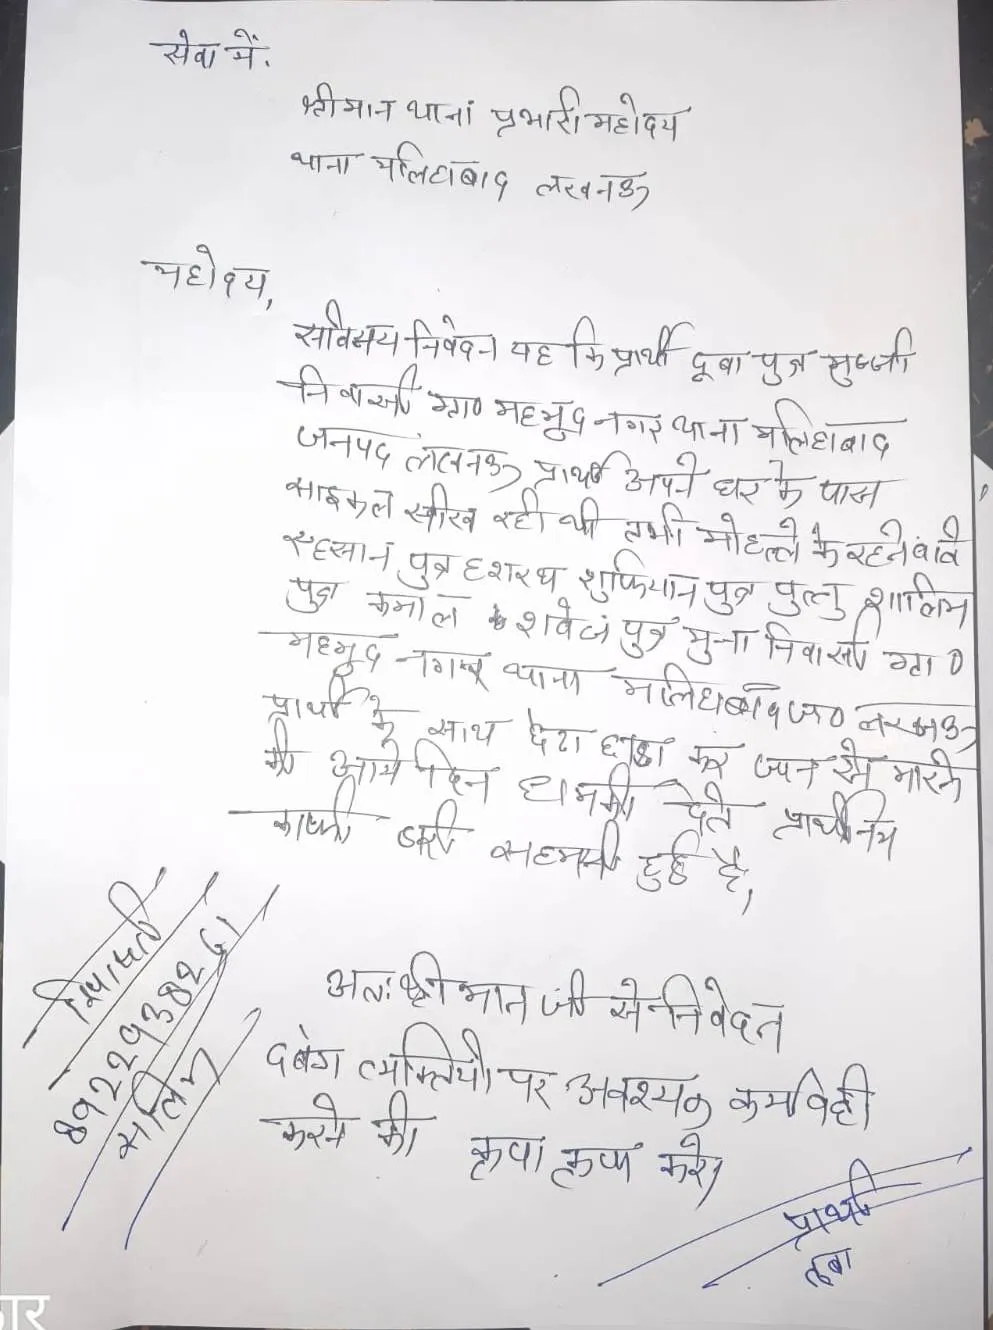 सेवा में.
श्रीमान थानां प्रभारी महोदय
थाना मलिहाबाद लखनऊ
महोदय,
सविनय निवेदन यह कि प्रार्थी दूबा पुत्र मुब्जी
निवासी ग्रा० महमूद नगर थाना मलिहाबाद
जनपद लखनऊ प्रार्थी अपने घर के पास
साइकल सीख रही थी तभी मोहल्ले के रहने वाले
पुत्र दशरथ शुफियान पुत्र पुत्तु शालिम
पुत्र कमाल शवेज पुत्र मुन्ना निवासी ग्रा०
महमूद नगर थाना मलिहाबाद ज० लखनऊ
प्रार्थी के साथ कर जान से मारने
की आये दिन धमकी देते
काफी डरी सहमी हुई है,
अतः श्रीमान जी से निवेदन
दबंग व्यक्तियो पर अवश्यक कार्यवाही
करने की कृपा करे।
प्रार्थी
8922938261